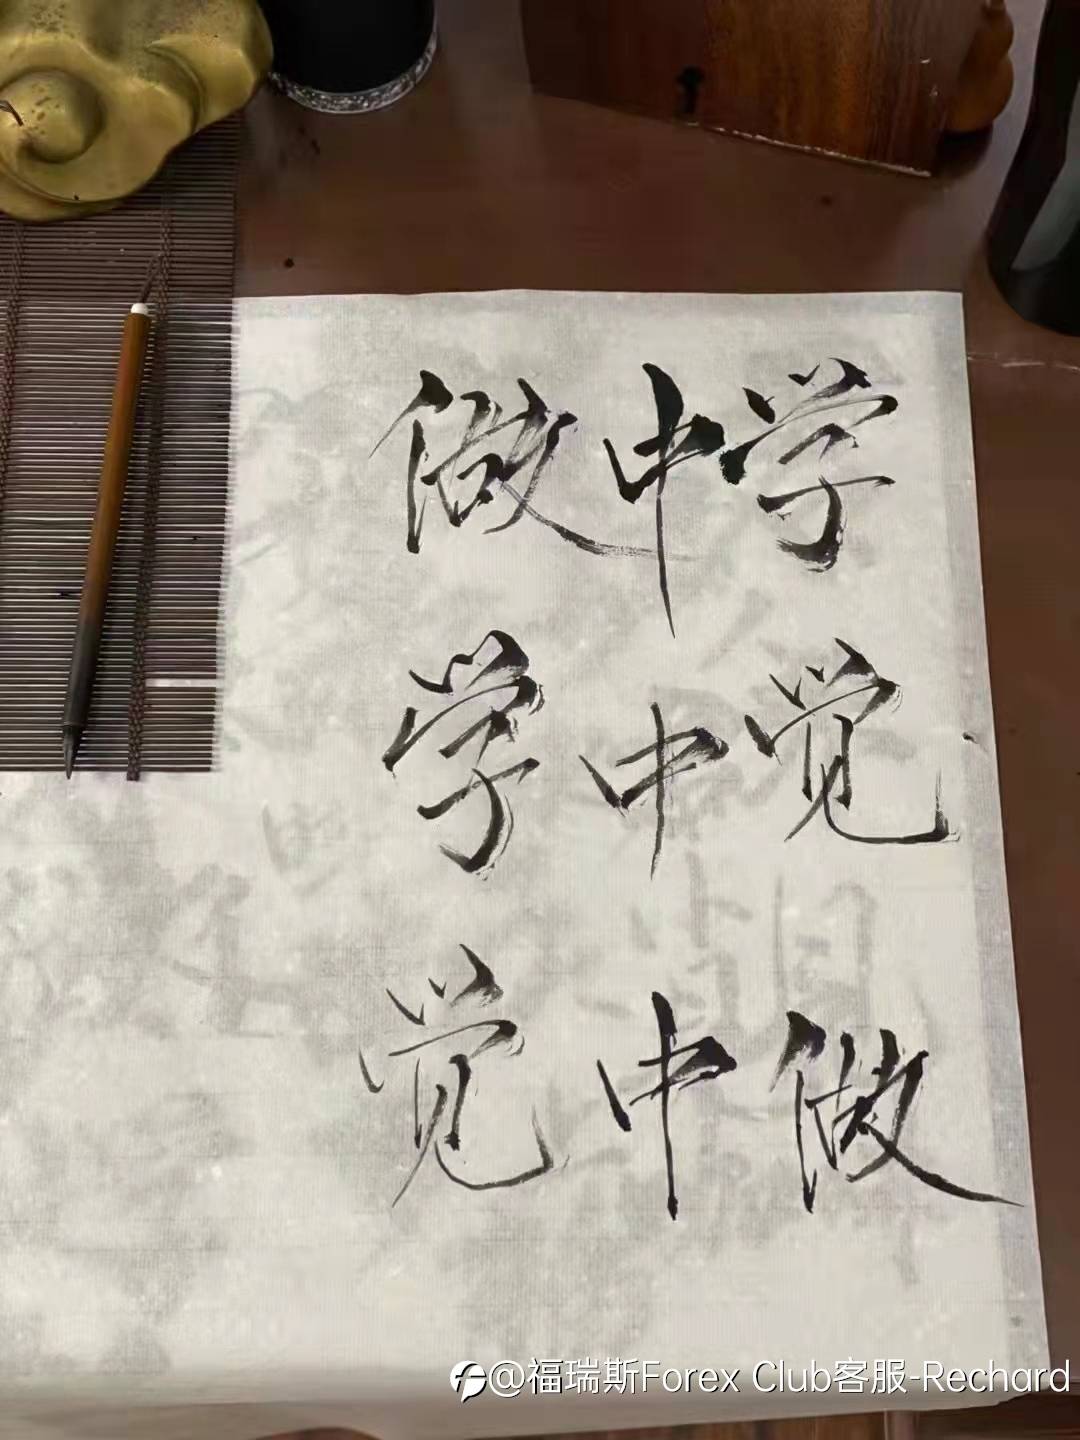 做中学
学中觉
觉中做
@福瑞斯Forex Club客服-Rechard